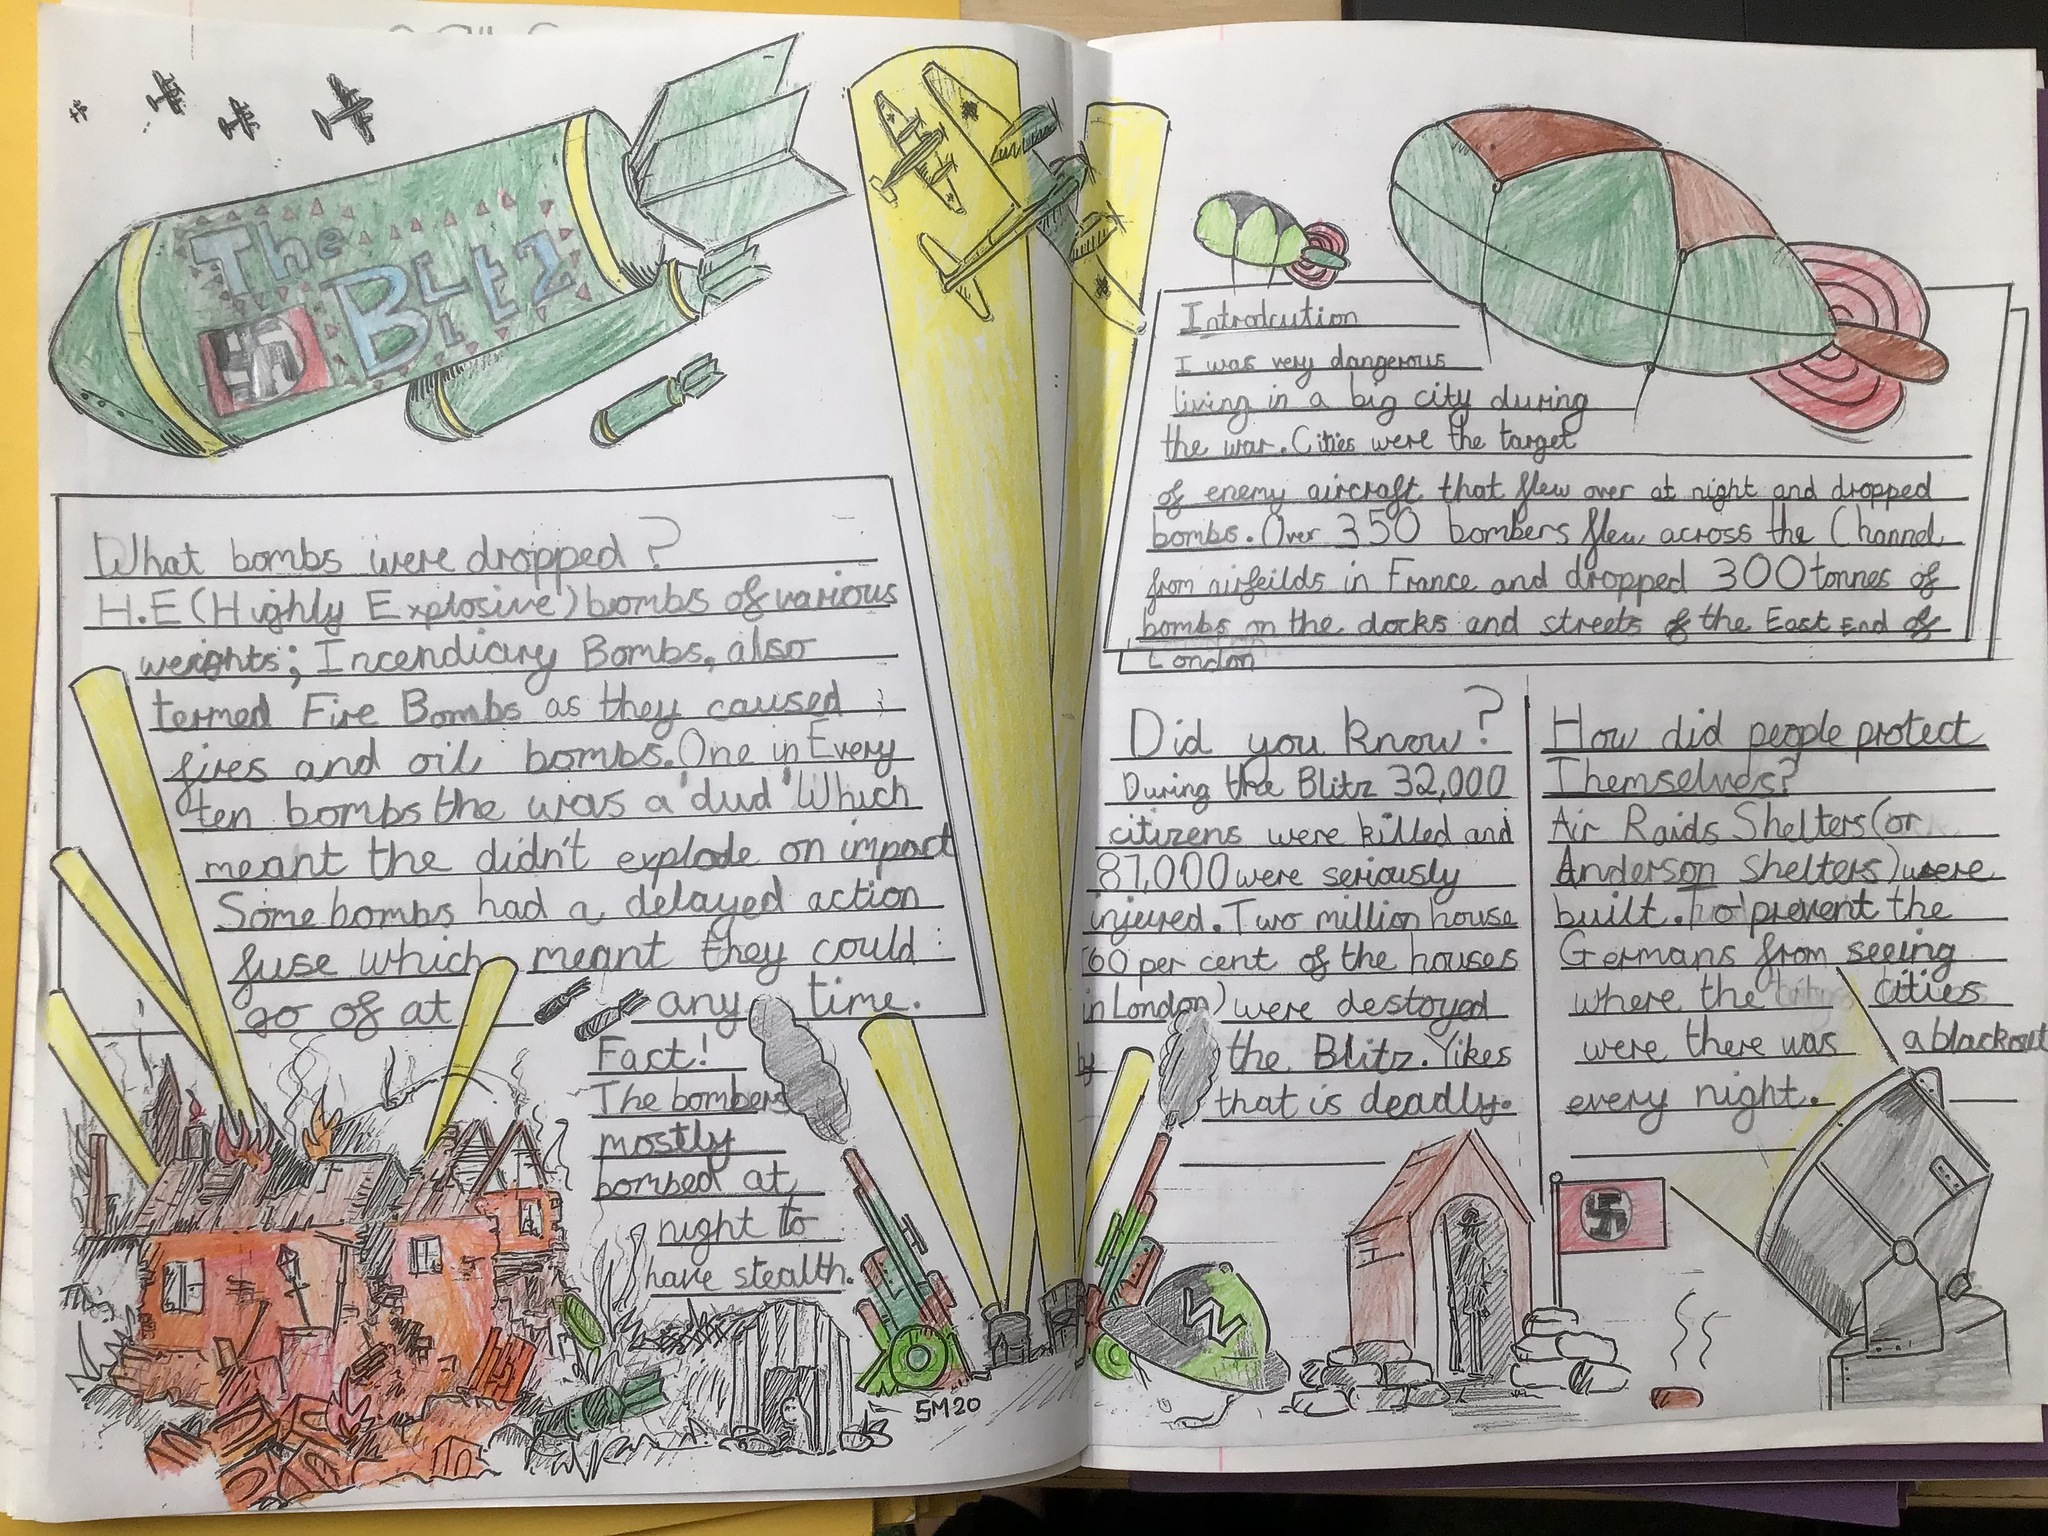 The
BLitz
What bombs were dropped?
H.E (Highly Explosive) bombs of various
weights; Incendiary Bombs, also
termed Fire Bombs as they caused
fires and oil bombs. One in Every
ten bombs the was a 'dud' Which
meant the didn't explode on impact
Some bombs had a delayed action
fuse which meant they could
go of at any time.
Fact!
The bombers
mostly
bombed at
night to
have stealth.
SM20
Introdcution
I was very dangerous
living in a big city during
the war. Cities were the target
of enemy aircraft that flew over at night and dropped
bombs. Over 350 bombers flew across the Channel
from airfeilds in France and dropped 300 tonnes of
bombs on the docks and streets of the East End of
London
Did you know?
During the Blitz 32,000
citizens were killed and
87,000 were seriously
injured. Two million house
(60 per cent of the houses
in London) were destoyed
by the Blitz. Yikes
that is deadly.
W
How did people protect
Themselves?
Air Raids Shelters (or
Anderson Shelters) were
built. To prevent the
Germans from seeing
where the cities
were there was a blackout
every night.